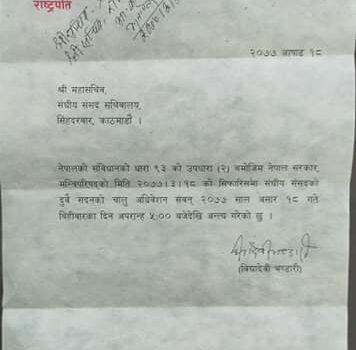 राष्ट्रपति
२०७७ आषाढ १८
श्री महासचिव,
संघीय संसद सचिवालय,
सिंहदरबार, काठमाडौं ।
नेपालको संविधानको धारा ९३ को उपधारा (२) बमोजिम नेपाल सरकार,
मन्त्रिपरिषद्को मिति २०७७।३।१८ को सिफारिसमा संघीय संसदको
दुवै सदनको चालु अधिवेशन संवत् २०७७ साल असार १८ गते
बिहीबारका दिन अपरान्ह ५:०० बजेदेखि अन्त्य गरेको छु ।
(विद्यादेवी भण्डारी)